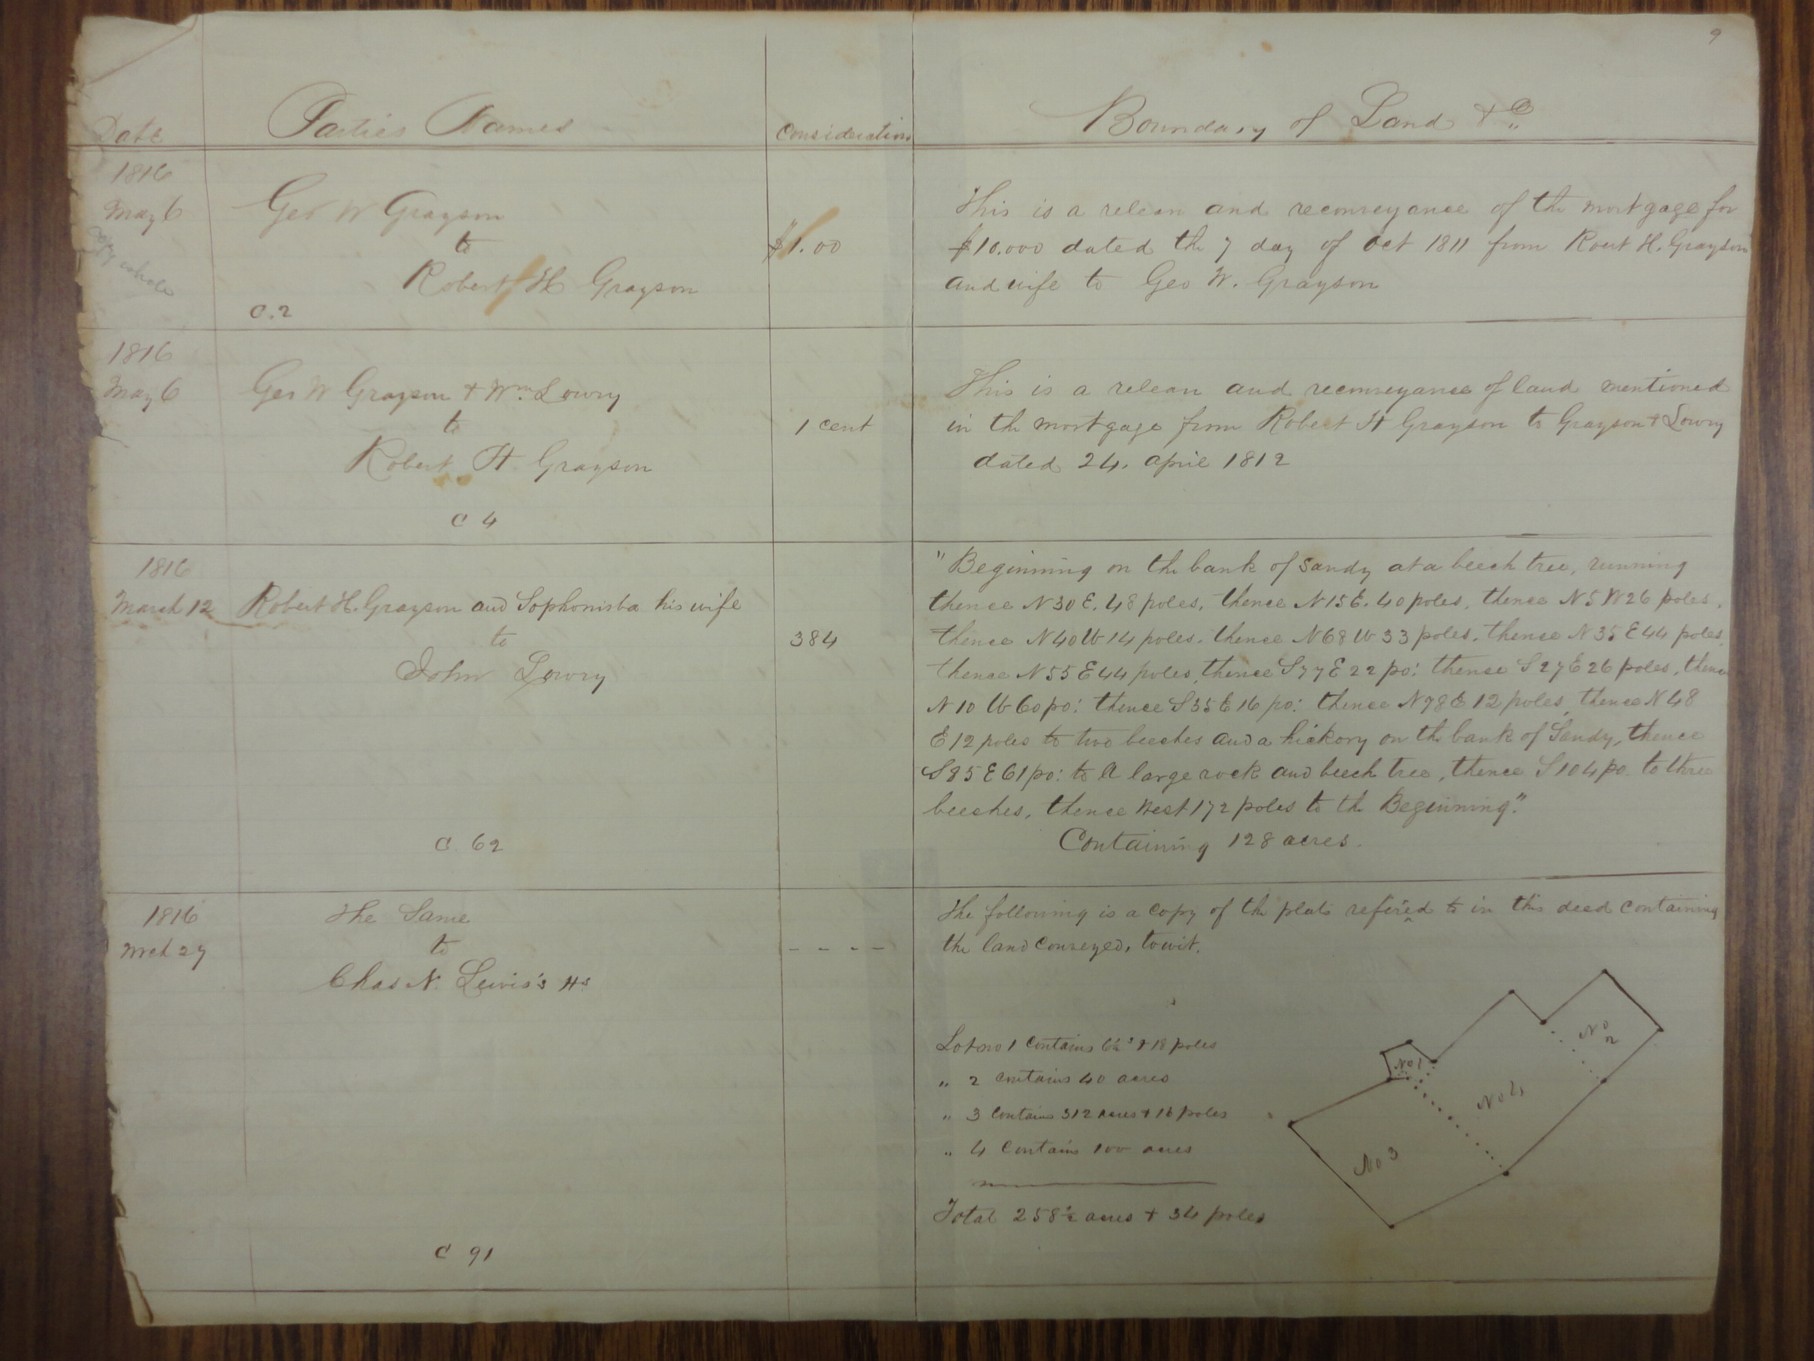 9
Date Parties Names Consideration Boundary of Land & Co
1816
May 6
copy whole
Geo W Grayson
to
Robert H Grayson
C. 2
$1.00
This is a releas and reconveyance of the mortgage for
$10.000 dated the 7 day of Oct 1811 from Robert H. Grayson
and wife to Geo W. Grayson
1816
May 6
Geo W Grayson & Wm. Lowry
to
Robert H Grayson
C 4
1 cent
This is a releas and reconveyance of land mentioned
in the mortgage from Robert H Grayson to Grayson & Lowry
dated 24. april 1812
1816
March 12
Robert H. Grayson and Sophonisba his wife
to
John Lowry
C. 62
384
"Beginning on the bank of Sandy at a beech tree, running
thence N 30 E. 48 poles, thence N 15 E. 40 poles, thence N 5 W 26 poles,
thence N 40 W 14 poles, thence N 68 W 33 poles, thence N 35 E 44 poles,
thence N 55 E 44 poles, thence S 77 E 22 po: thence S 27 E 26 poles, thence
N 10 W 60 po: thence S 35 E 16 po: thence N 78 E 12 poles, thence N 48
E 12 poles to two beeches and a hickory on the bank of Sandy, thence
S 85 E 61 po: to A large rock and beech tree, thence S 104 po. to three
beeches, thence West 172 poles to the Beginning."
Containing 128 acres.
1816
Mrch 27
The Same
to
Chas N. Lewis's Hs
C 91
- - - -
The following is a copy of the plats refered to in this deed containing
the land conveyed, towit.
Lot no 1 contains 6½ & 18 poles
" 2 contains 40 acres
" 3 contains 312 acres & 16 poles
" 4 contains 100 acres
Total 258½ acres & 34 poles
No 1
No 2
No 4
No 3